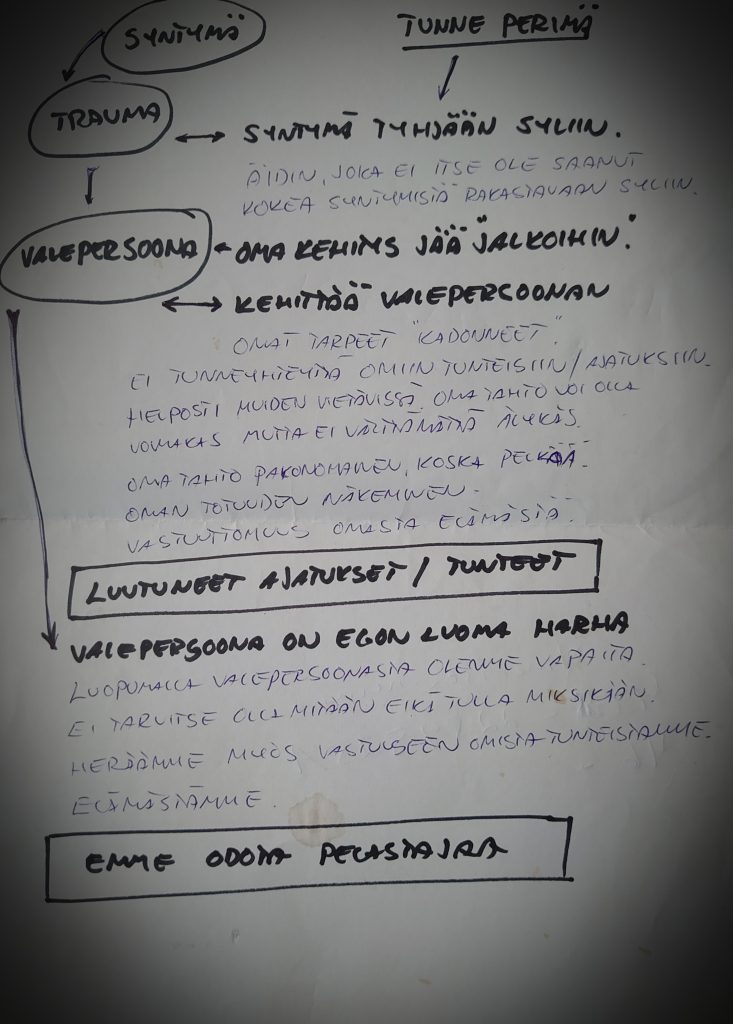 SYNTYMÄ
TUNNE PERIMÄ
TRAUMA
SYNTYMÄ TYHJÄÄN SYLIIN.
ÄIDIN, JOKA EI ITSE OLE SAANUT
KOKEA SYNTYMISTÄ RAKASTAVAAN SYLIIN.
VALEPERSOONA
OMA KEHITYS JÄÄ "JALKOIHIN."
KEHITTÄÄ VALEPERSOONAN
OMAT TARPEET "KADONNEET".
EI TUNNEYHTEYTTÄ OMIIN TUNTEISIIN/AJATUKSIIN.
HELPOSTI MUIDEN VIETÄVISSÄ. OMA TAHTO VOI OLLA
VOIMAKAS MUTTA EI VÄLTTÄMÄTTÄ ÄLYKÄS.
OMA TAHTO PAKONOMAINEN, KOSKA PELKÄÄ
OMAN TOTUUDEN NÄKEMINEN.
VASTUUTTOMUUS OMASTA ELÄMÄSTÄ.
LUUTUNEET AJATUKSET / TUNTEET
VALEPERSOONA ON EGON LUOMA HARHA
LUOPUMALLA VALEPERSOONASTA OLEMME VAPAITA.
EI TARVITSE OLLA MITÄÄN EIKÄ TULLA MIKSIKÄÄN.
HERÄÄMME MYÖS VASTUUSEEN OMISTA TUNTEISTAMME.
ELÄMÄSTÄMME.
EMME ODOTA PELASTAJAA